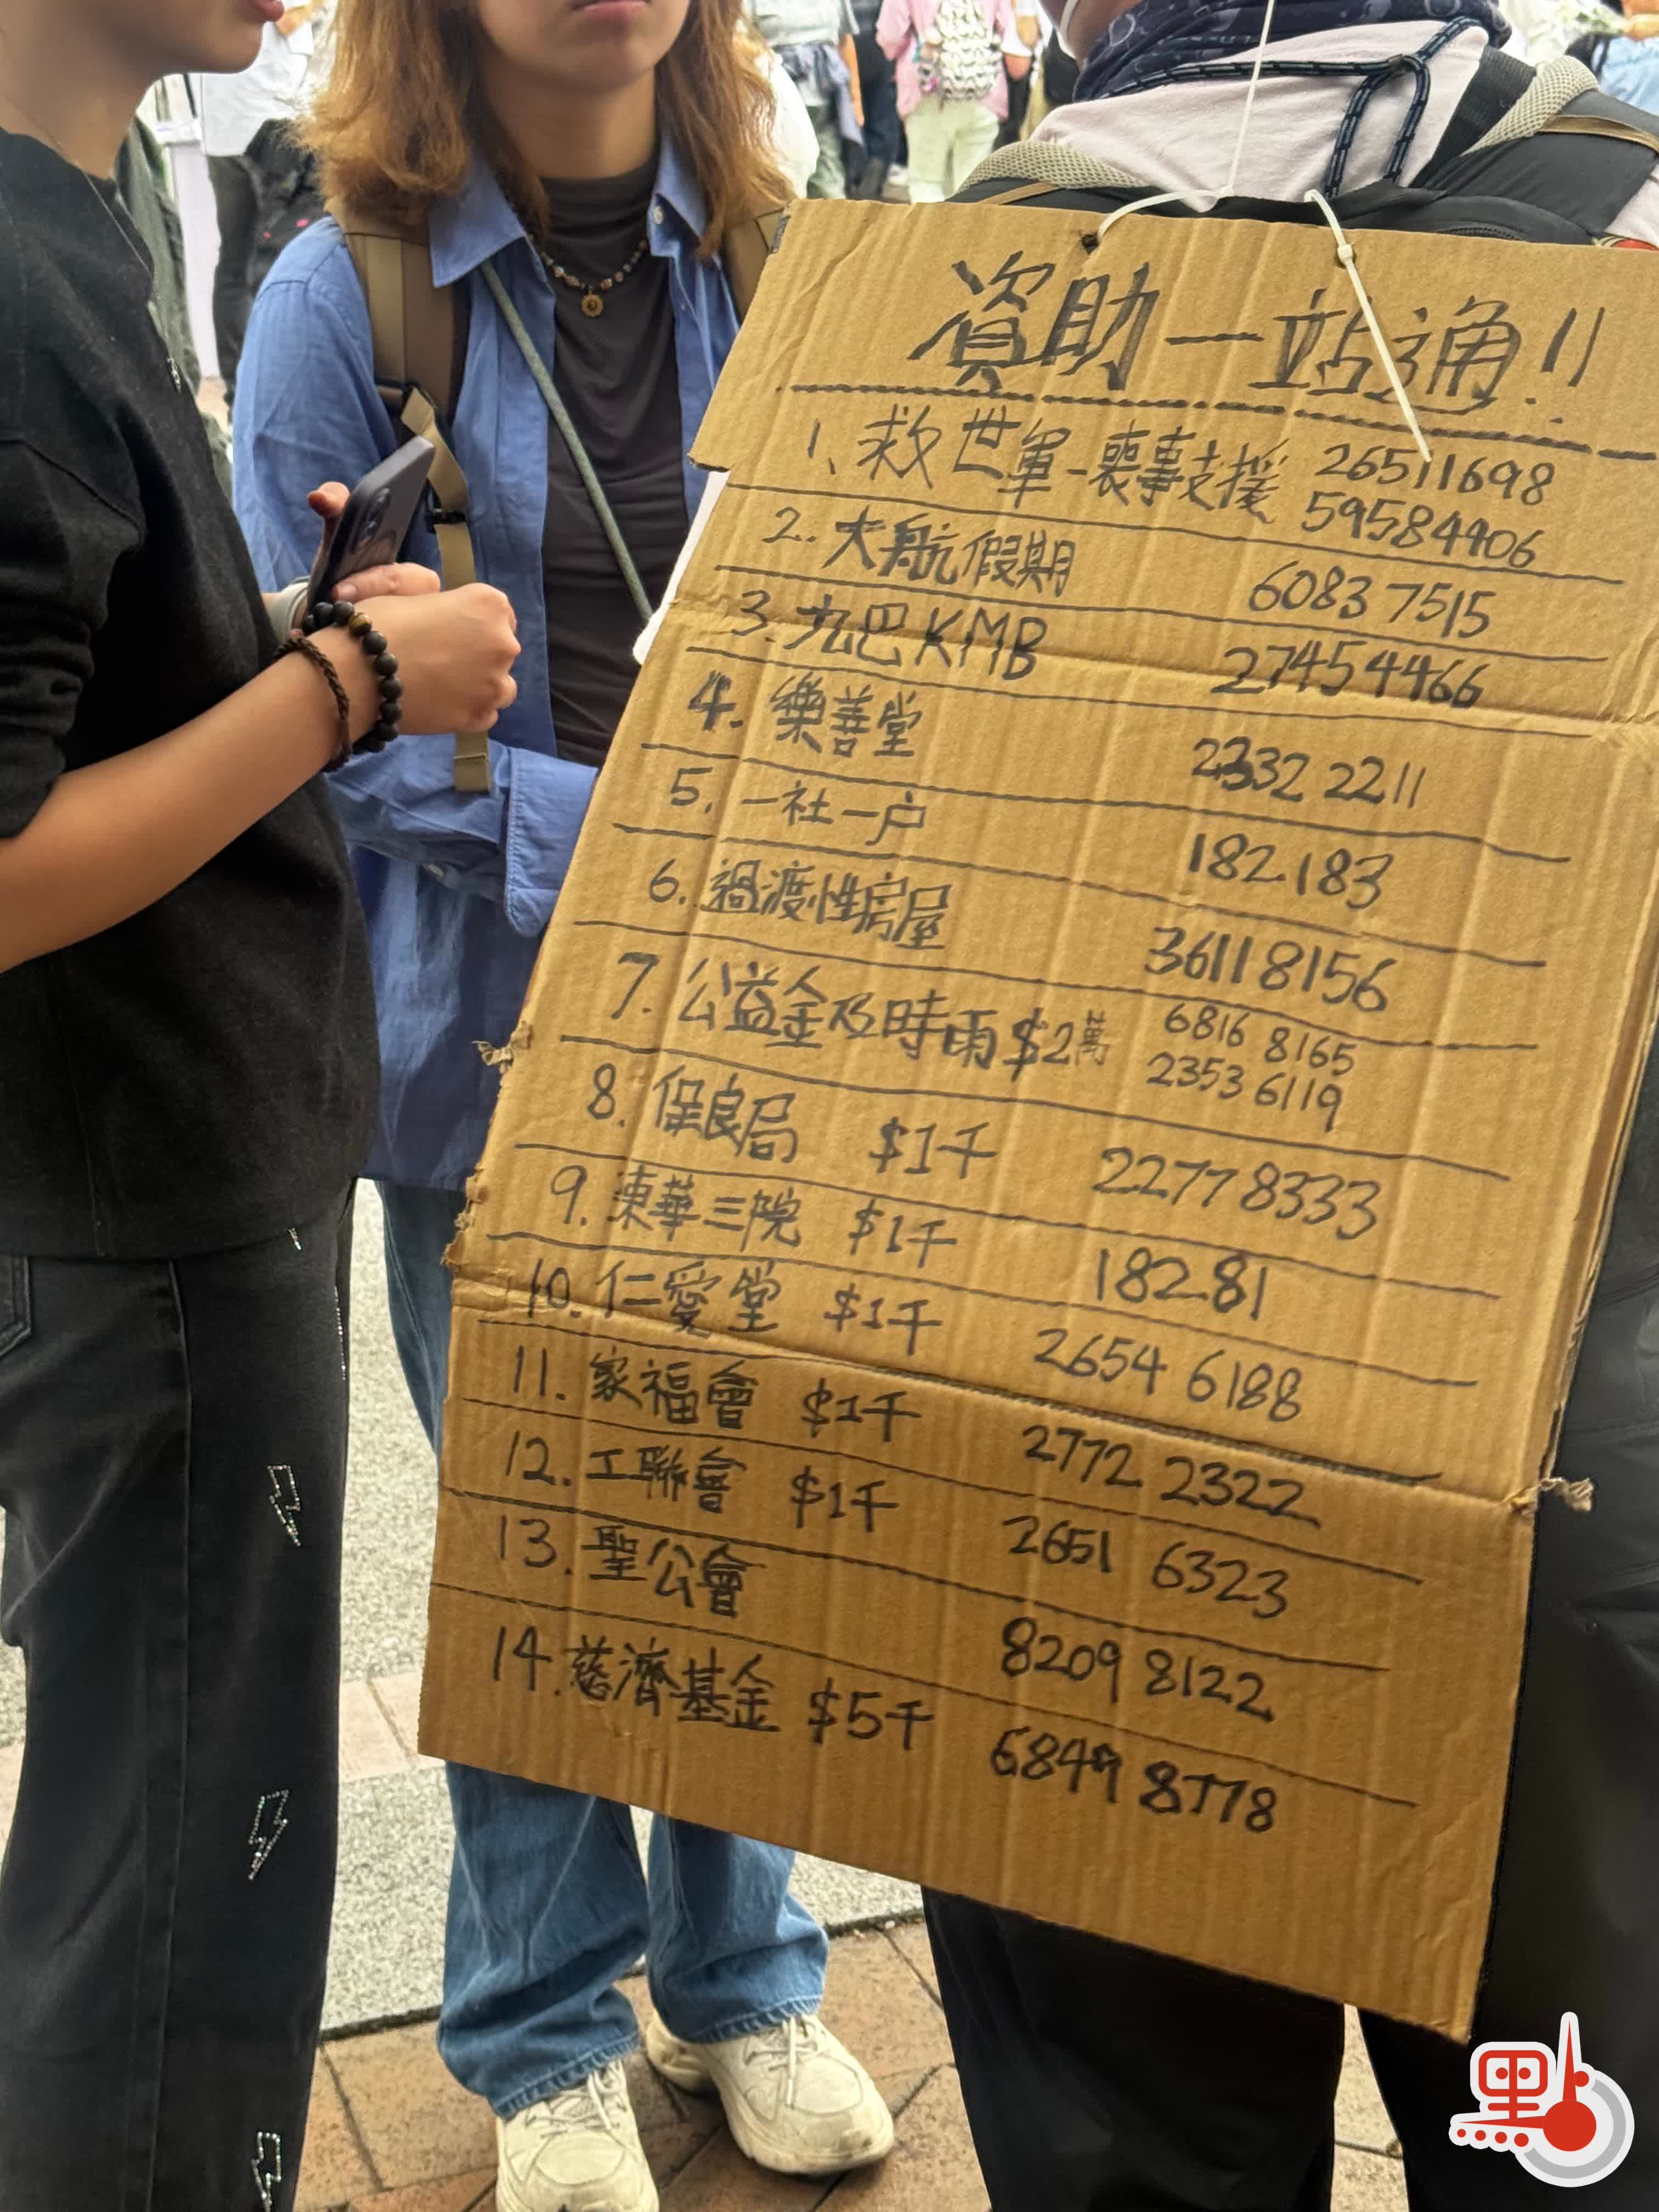 資助一站通!!
1. 救世軍-喪事支援 26511698
59584906
2. 大航假期 6083 7515
3. 九巴 KMB 27454466
4. 樂善堂 2332 2211
5. 一社一户 182183
6. 過渡性房屋 3611 8156
7. 公益金及時雨 $2萬 6816 8165
2353 6119
8. 保良局 $1千 2277 8333
9. 東華三院 $1千 18281
10. 仁愛堂 $1千 2654 6188
11. 家福會 $1千 2772 2322
12. 工聯會 $1千 2651 6323
13. 聖公會 8209 8122
14. 慈濟基金 $5千 6849 8778
點